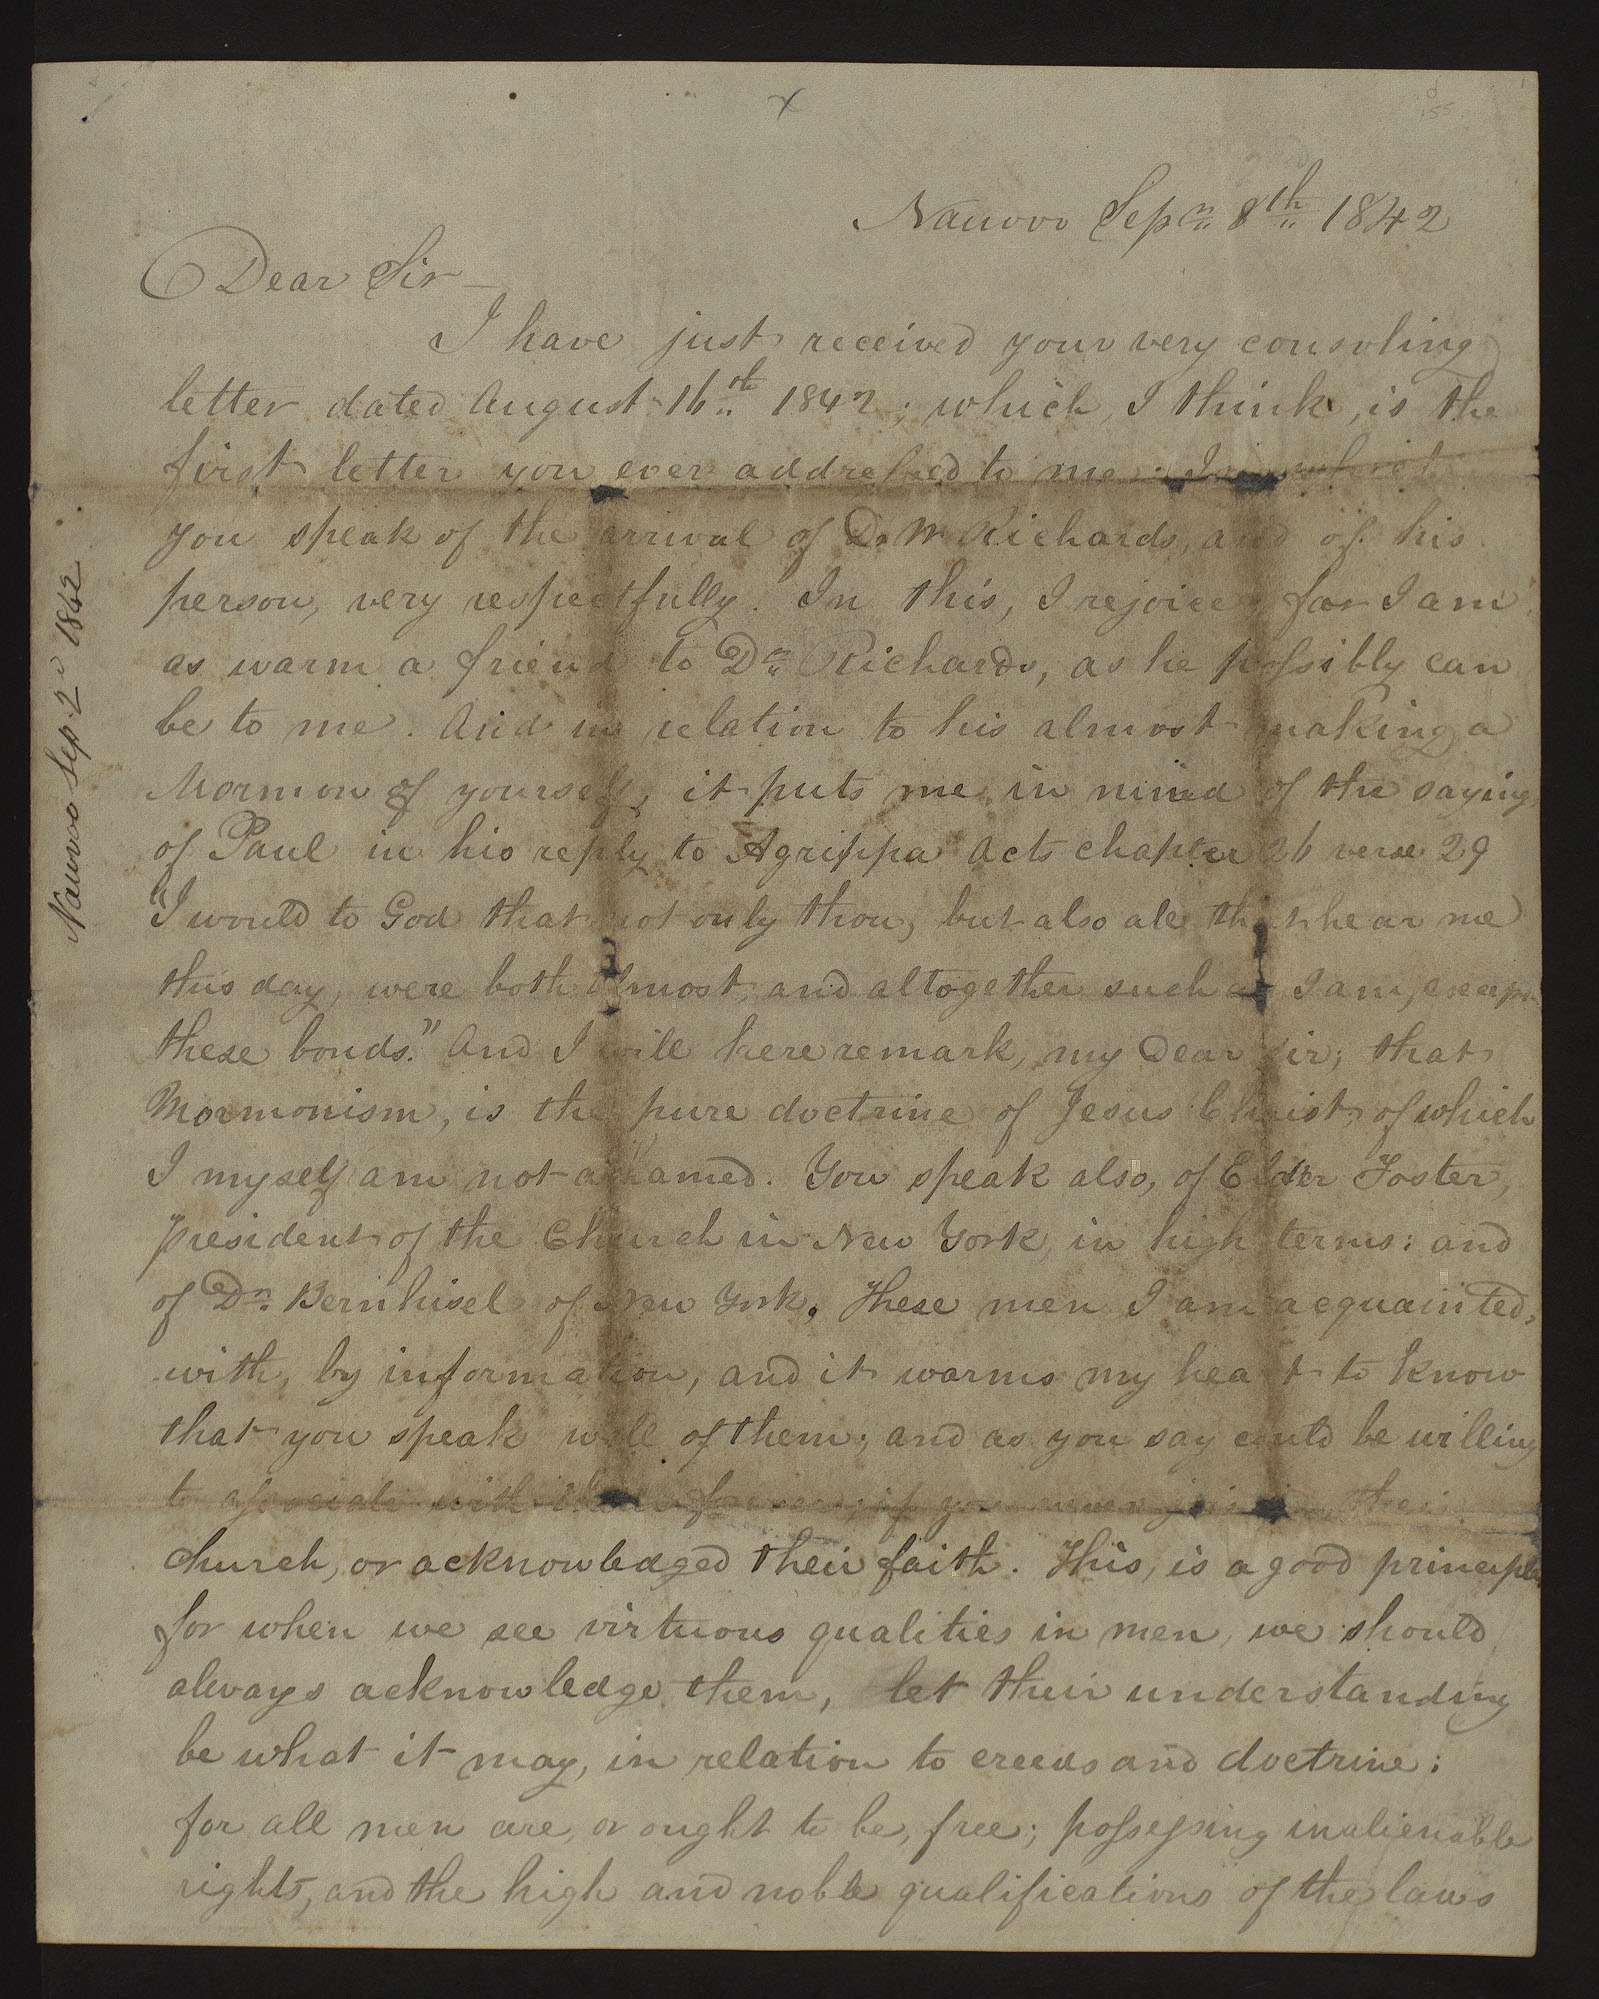 Nauvoo Sepr. 8th 1842
Dear Sir—
I have just received your very consoling
letter dated August 16th 1842; which, I think, is the
first letter you ever addressed to me; In which
you speak of the arrival of Dr W Richards, and of his
person, very respectfully. In this, I rejoice for I am
as warm a friend to Dr. Richards, as he possibly can
be to me. And in relation to his almost making a
Mormon of yourself, it puts me in mind of the saying
of Paul in his reply to Agrippa Acts chapter 26 verse 29
"I would to God that not only thou, but also all that hear me
this day, were both almost, and altogether such as I am, except
these bonds." And I will here remark, my Dear Sir; that
Mormonism, is the pure doctrine of Jesus Christ, of which
I myself am not ashamed. You speak also, of Elder Foster,
president of the Church in New York, in high terms: and
of Dr. Bernhisel of New York. These men I am acquainted,
with, by information, and it warms my heart to know
that you speak well of them; and as you say could be willing
to associate with them forever, if you never join in their
church, or acknowledged their faith. This, is a good principle
for when we see virtuous qualities in men, we should
always acknowledge them, let their understanding
be what it may, in relation to creeds and doctrine;
for all men are, or ought to be, free; possessing inalienable
rights, and the high and noble qualifications of the laws
Nauvoo Sep. 2d 1842